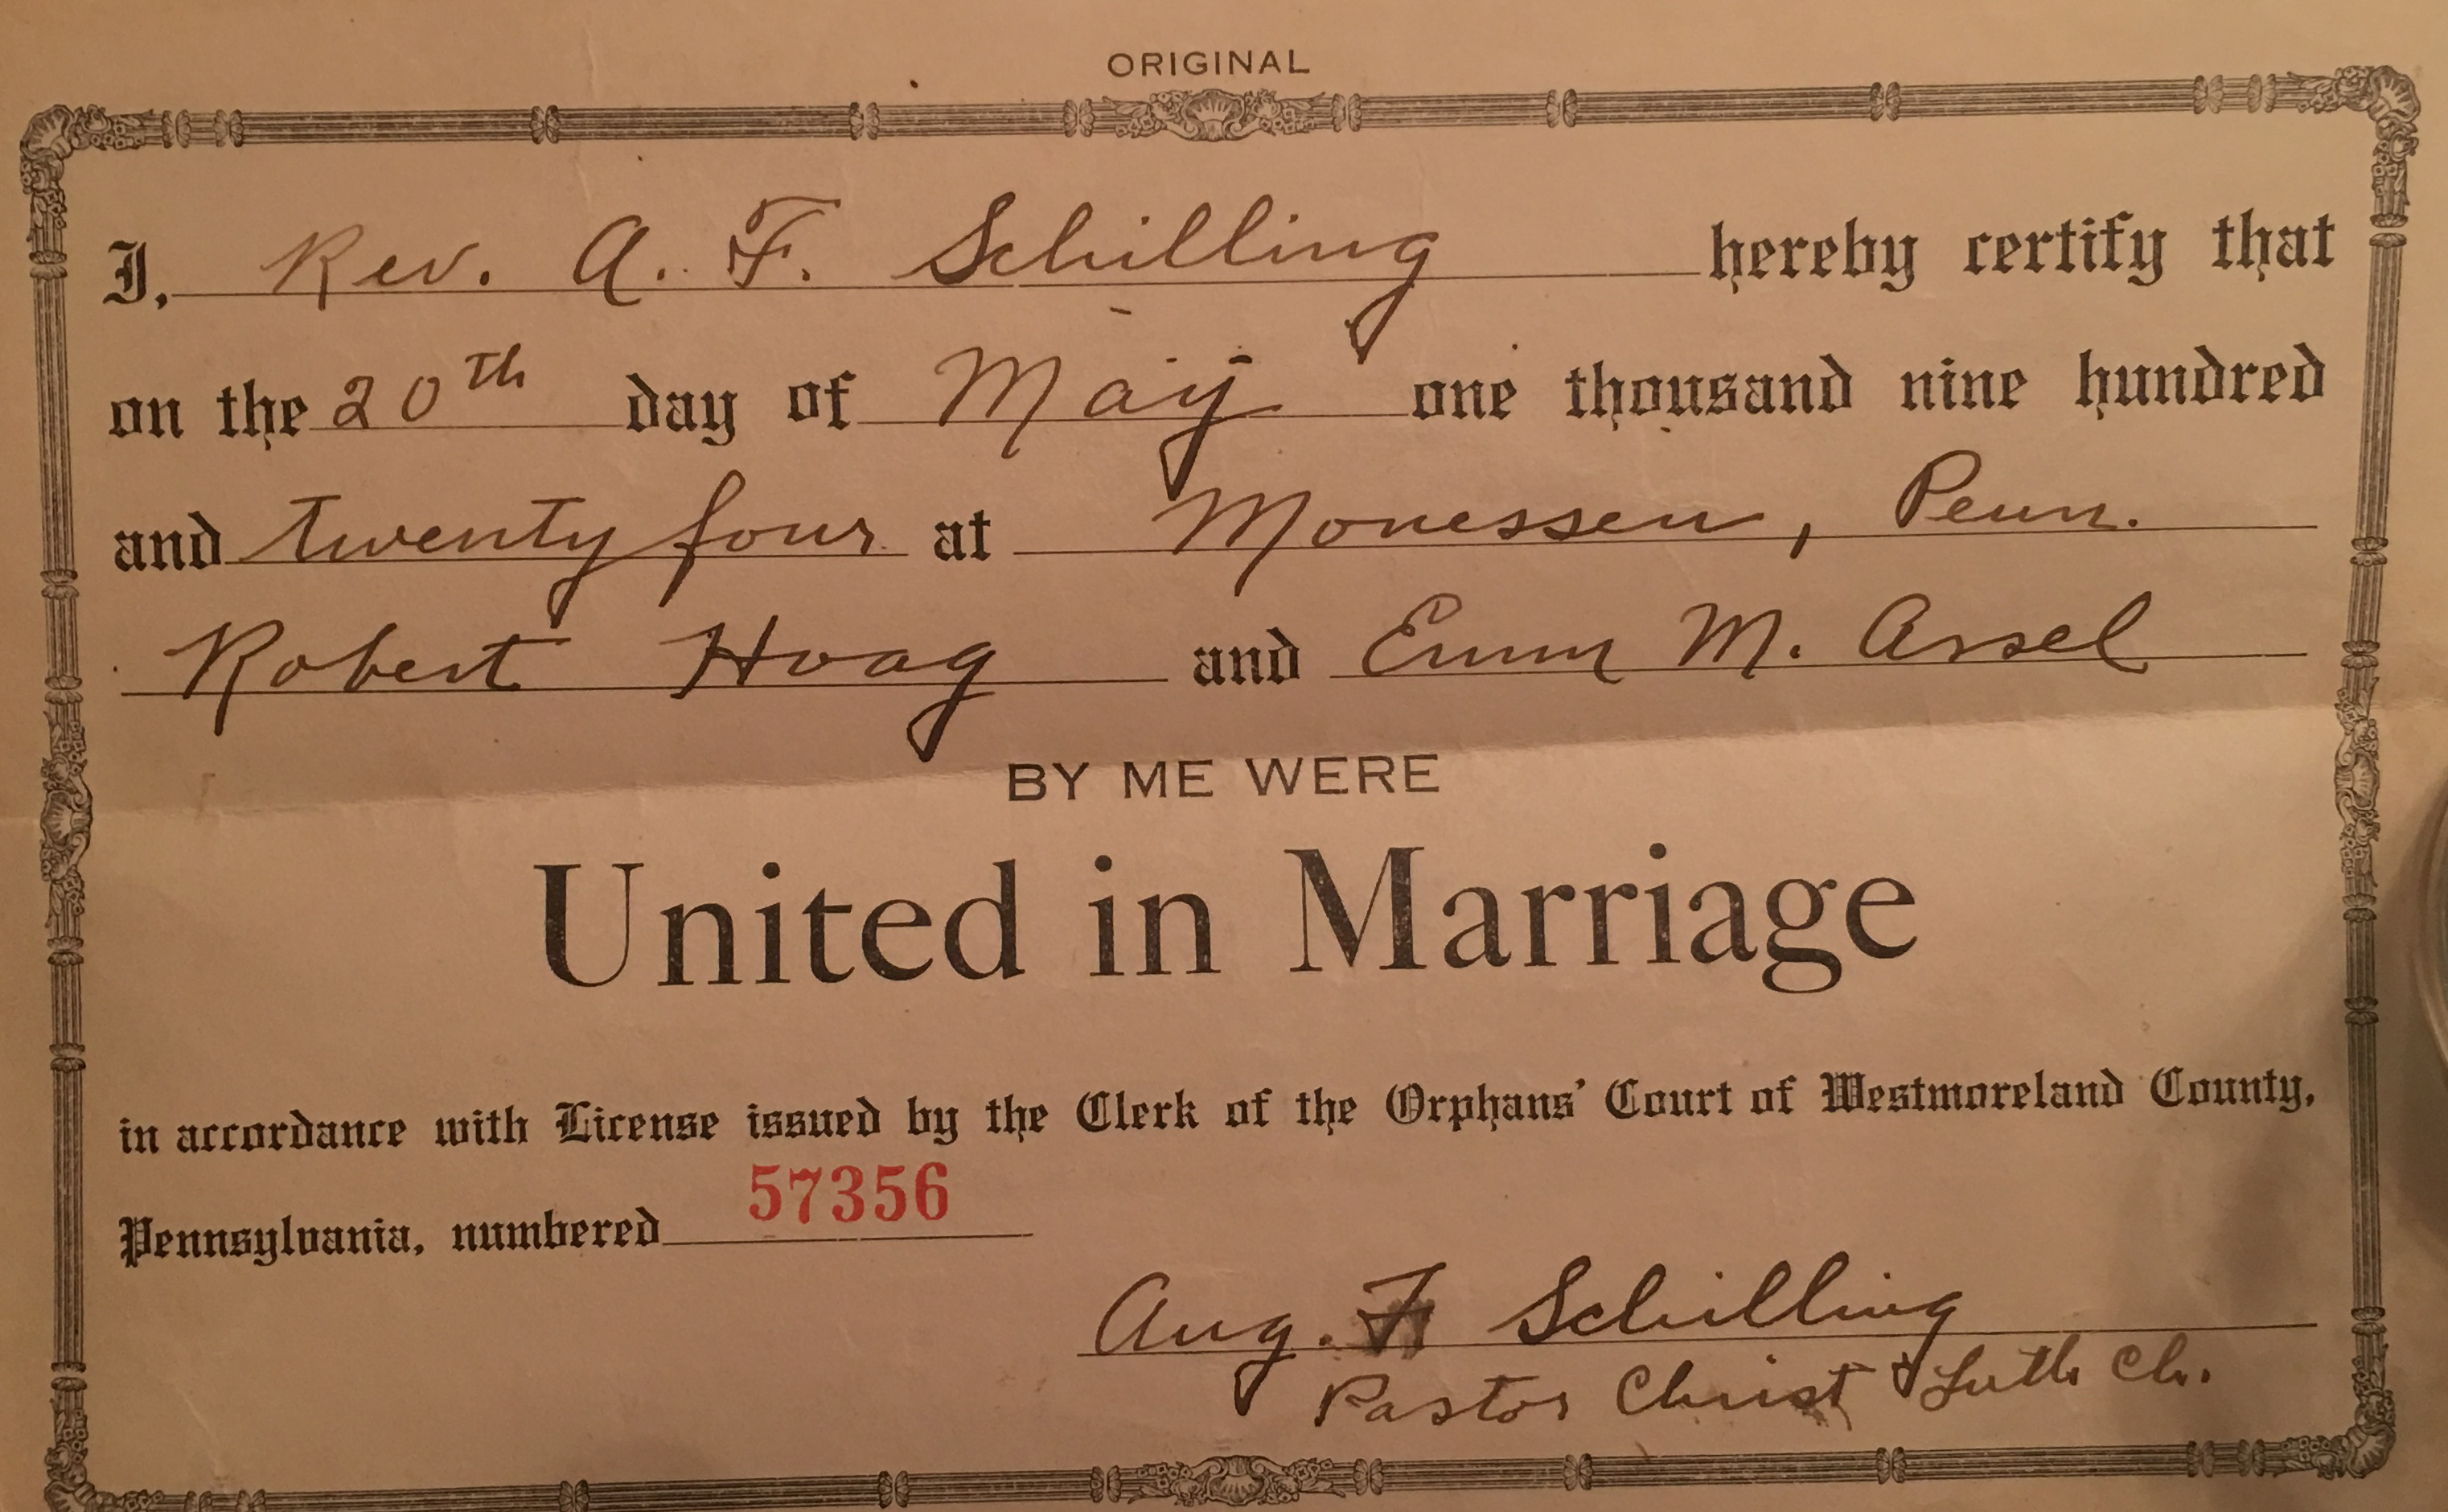 ORIGINAL
I, Rev. A. F. Schilling hereby certify that
on the 20th day of May one thousand nine hundred
and twenty four at Monessen, Penn.
Robert Hoag and Emm M. Assel
BY ME WERE
United in Marriage
in accordance with License issued by the Clerk of the Orphans' Court of Westmoreland County,
Pennsylvania, numbered 57356
Aug. F Schilling
Pastor Christ Luth Ch.